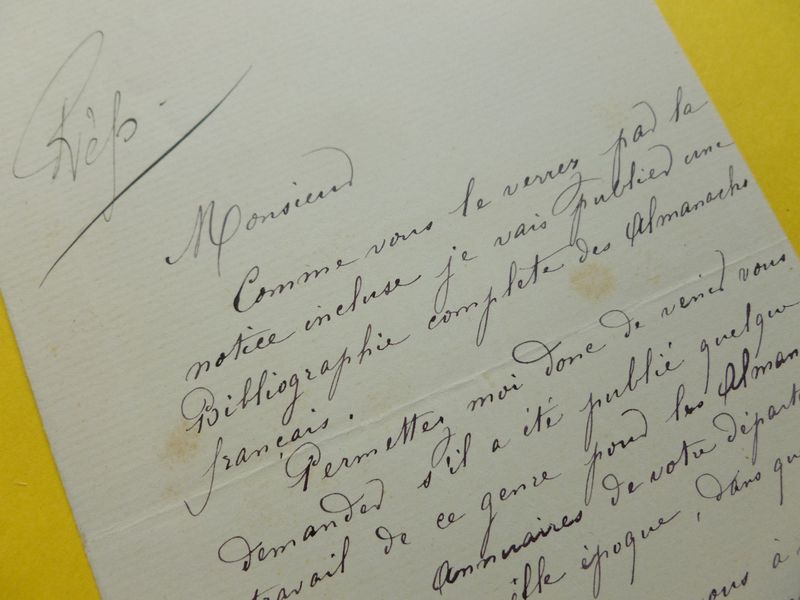 Rép.
Monsieur
Comme vous le verrez par la
notice incluse je vais publier une
Bibliographie complete des Almanachs
français.
Permettez moi donc de venir vous
demander s'il a été publié quelque
travail de ce genre pour les Alman
Annuaires de votre départe
époque, dans qu
vous à